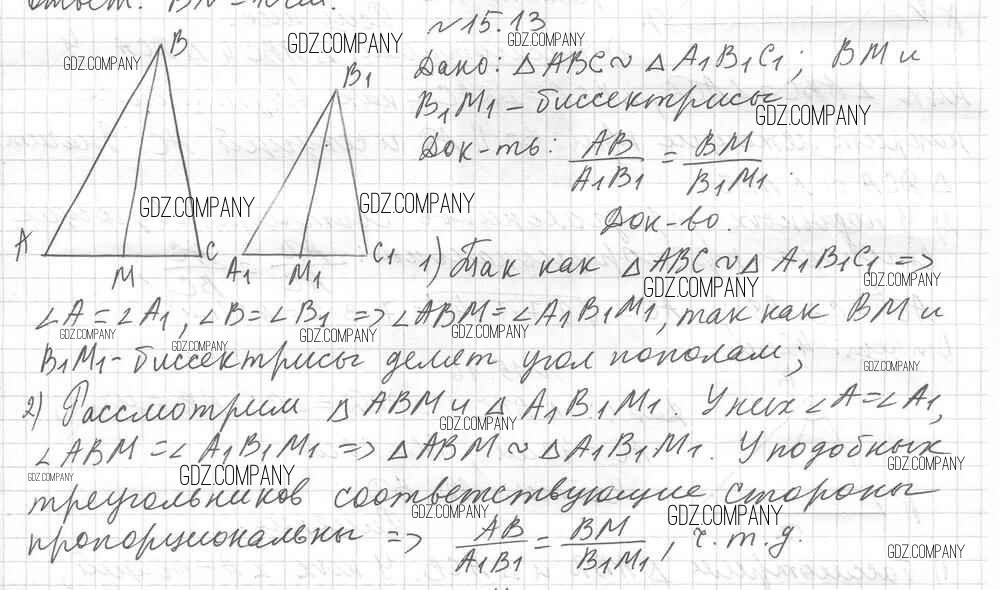 Ответ: BN =
№15.13
Дано: △ABC ~ △A1B1C1; BM и
B1M1 - биссектрисы
Док-ть: AB/A1B1 = BM/B1M1.
Док-во.
B
B1
A
M
C
A1
M1
C1
1) Так как △ABC ~ △A1B1C1 =>
∠A = ∠A1, ∠B = ∠B1 => ∠ABM = ∠A1B1M1, так как BM и
B1M1 - биссектрисы делят угол пополам;
2) Рассмотрим △ABM и △A1B1M1. У них ∠A = ∠A1,
∠ABM = ∠A1B1M1 => △ABM ~ △A1B1M1. У подобных
треугольников соответствующие стороны
пропорциональны => AB/A1B1 = BM/B1M1, ч.т.д.
GDZ.COMPANY
GDZ.COMPANY
GDZ.COMPANY
GDZ.COMPANY
GDZ.COMPANY
GDZ.COMPANY
GDZ.COMPANY
GDZ.COMPANY
GDZ.COMPANY
GDZ.COMPANY
GDZ.COMPANY
GDZ.COMPANY
GDZ.COMPANY
GDZ.COMPANY
GDZ.COMPANY
GDZ.COMPANY
GDZ.COMPANY
GDZ.COMPANY
GDZ.COMPANY